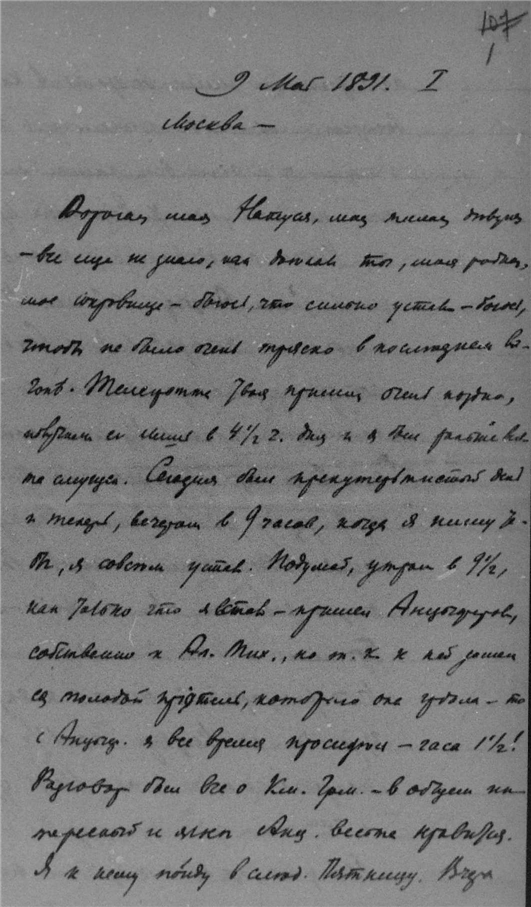 107
1
9 Май 1891. I
Москва –
Дорогая моя Натуся, моя милая
– все еще не знаю, как доехала ты, моя родная,
мое сокровище – боюсь, что сильно устала – боюсь,
чтобы не было очень тряско в последнем ва-
гонѣ. Телеграмма твоя пришла очень поздно,
получили ее лишь в 4 1/2 ч. дня и я был
Сегодня был день
и теперь, вечером в 9 часов, когда я пишу те-
бѣ, я совсѣм устал. Подумай, утром в 9 1/2,
как только что я встал – пришел
собственно к Ал. Мих., но т. к. к ней
молодой которого она – то
с я все время просидѣл – часа 1 1/2!
Разговор был все о Кл. Грам. – в общем ин-
тересный и мнѣ нравится.
Я к нему пойду в слѣд. Пятницу. Вчера